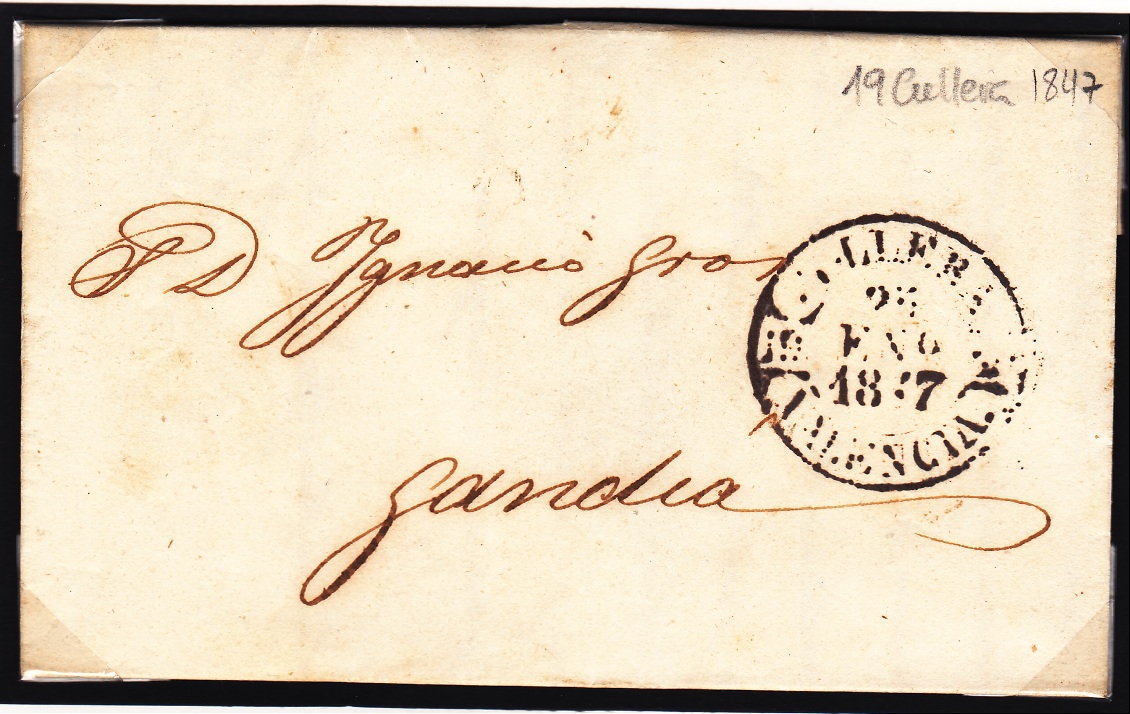 19 Cullera 1847
S D Ygnacio Gros
CULLERA
ENO
1847
VALENCIA.
Gandia